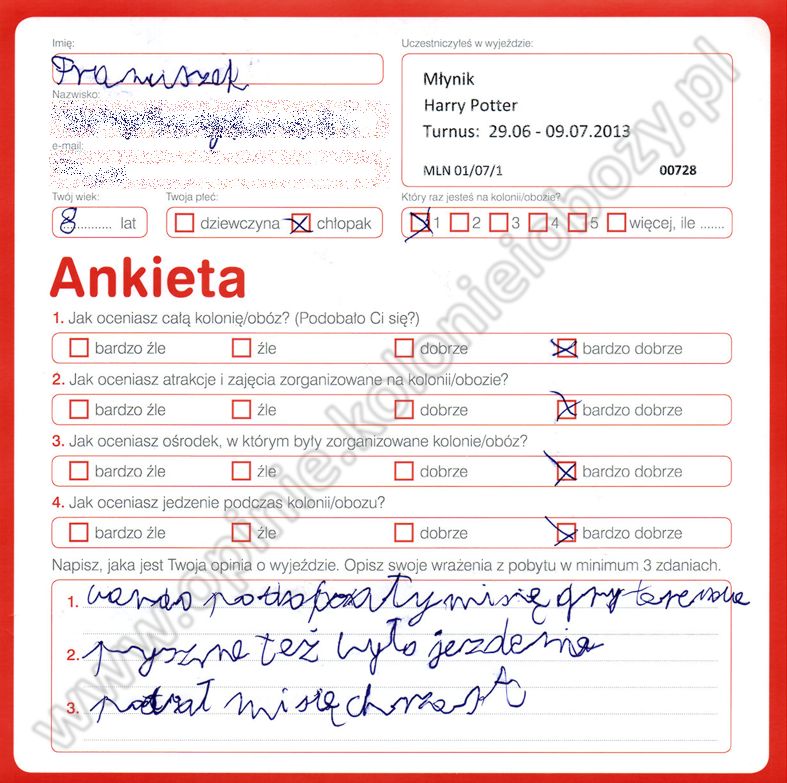 Imię:
Franciszek
Nazwisko:
e-mail:
Twój wiek:
8 lat
Twoja płeć:
dziewczyna chłopak
Uczestniczyłeś w wyjeździe:
Młynik
Harry Potter
Turnus: 29.06 - 09.07.2013
MLN 01/07/1 00728
Który raz jesteś na kolonii/obozie?
1 2 3 4 5 więcej, ile .......
Ankieta
1. Jak oceniasz całą kolonię/obóz? (Podobało Ci się?)
bardzo źle źle dobrze bardzo dobrze
2. Jak oceniasz atrakcje i zajęcia zorganizowane na kolonii/obozie?
bardzo źle źle dobrze bardzo dobrze
3. Jak oceniasz ośrodek, w którym były zorganizowane kolonie/obóz?
bardzo źle źle dobrze bardzo dobrze
4. Jak oceniasz jedzenie podczas kolonii/obozu?
bardzo źle źle dobrze bardzo dobrze
Napisz, jaka jest Twoja opinia o wyjeździe. Opisz swoje wrażenia z pobytu w minimum 3 zdaniach.
1. mi się gry terenowe
2. pyszne też było jezdenie
3. mi się chrzest
www.opinie.kolonieiobozy.pl